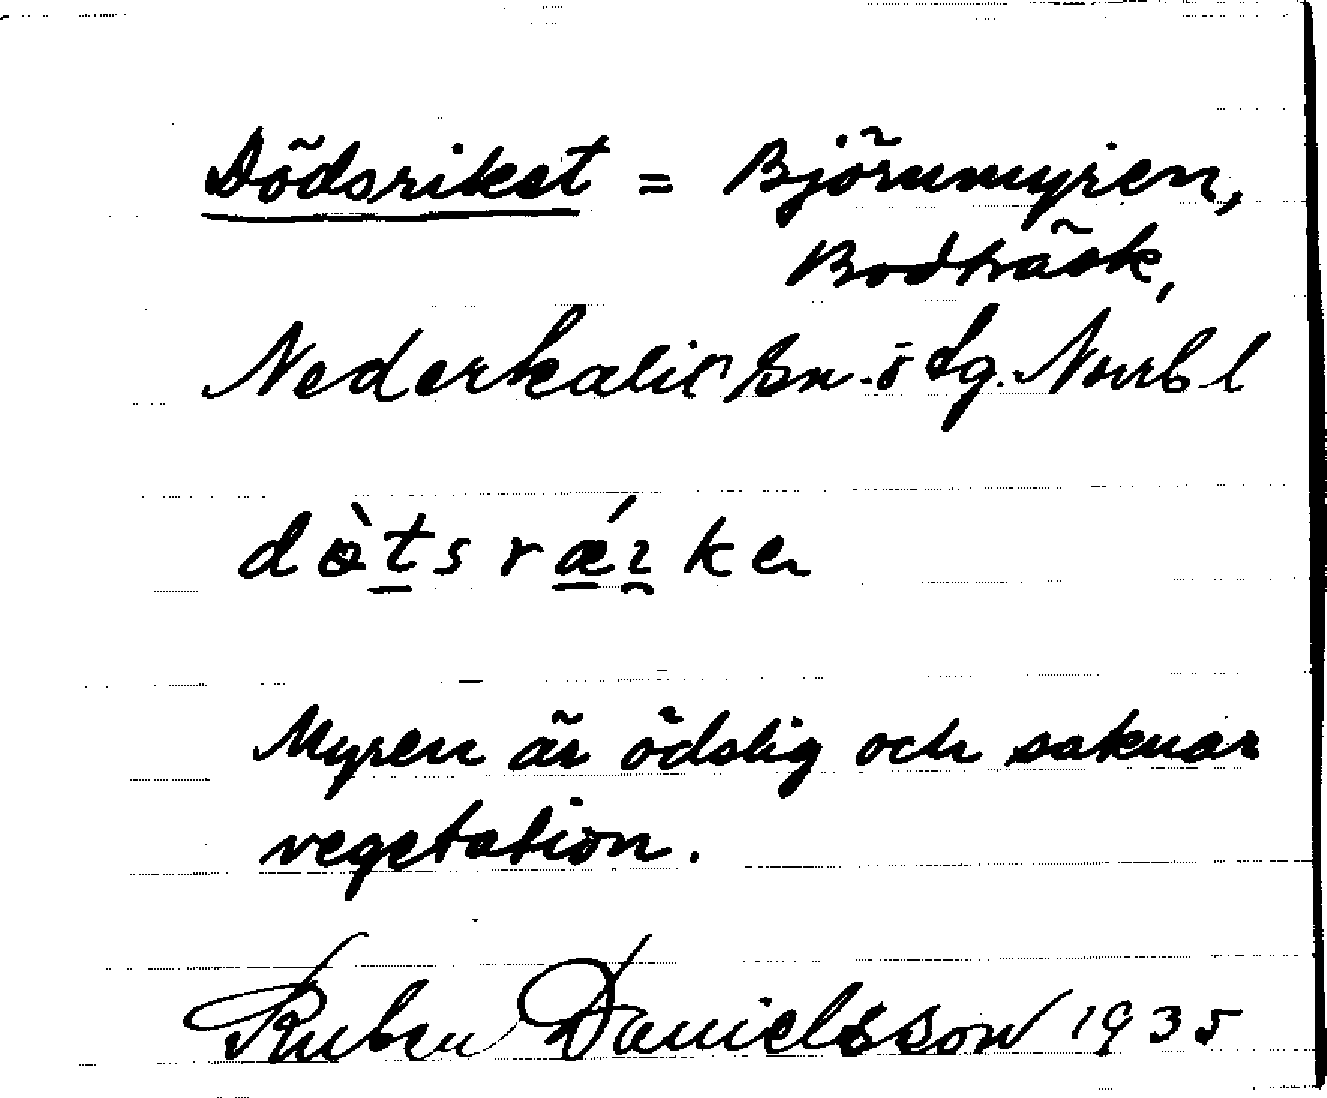 Dödsriket = Björnmyren,
Bodträsk,
Nederkalix sn. ö dg. Norrb l
Myren är ödslig och saknar
vegetation.
Ruben Danielsson 1935